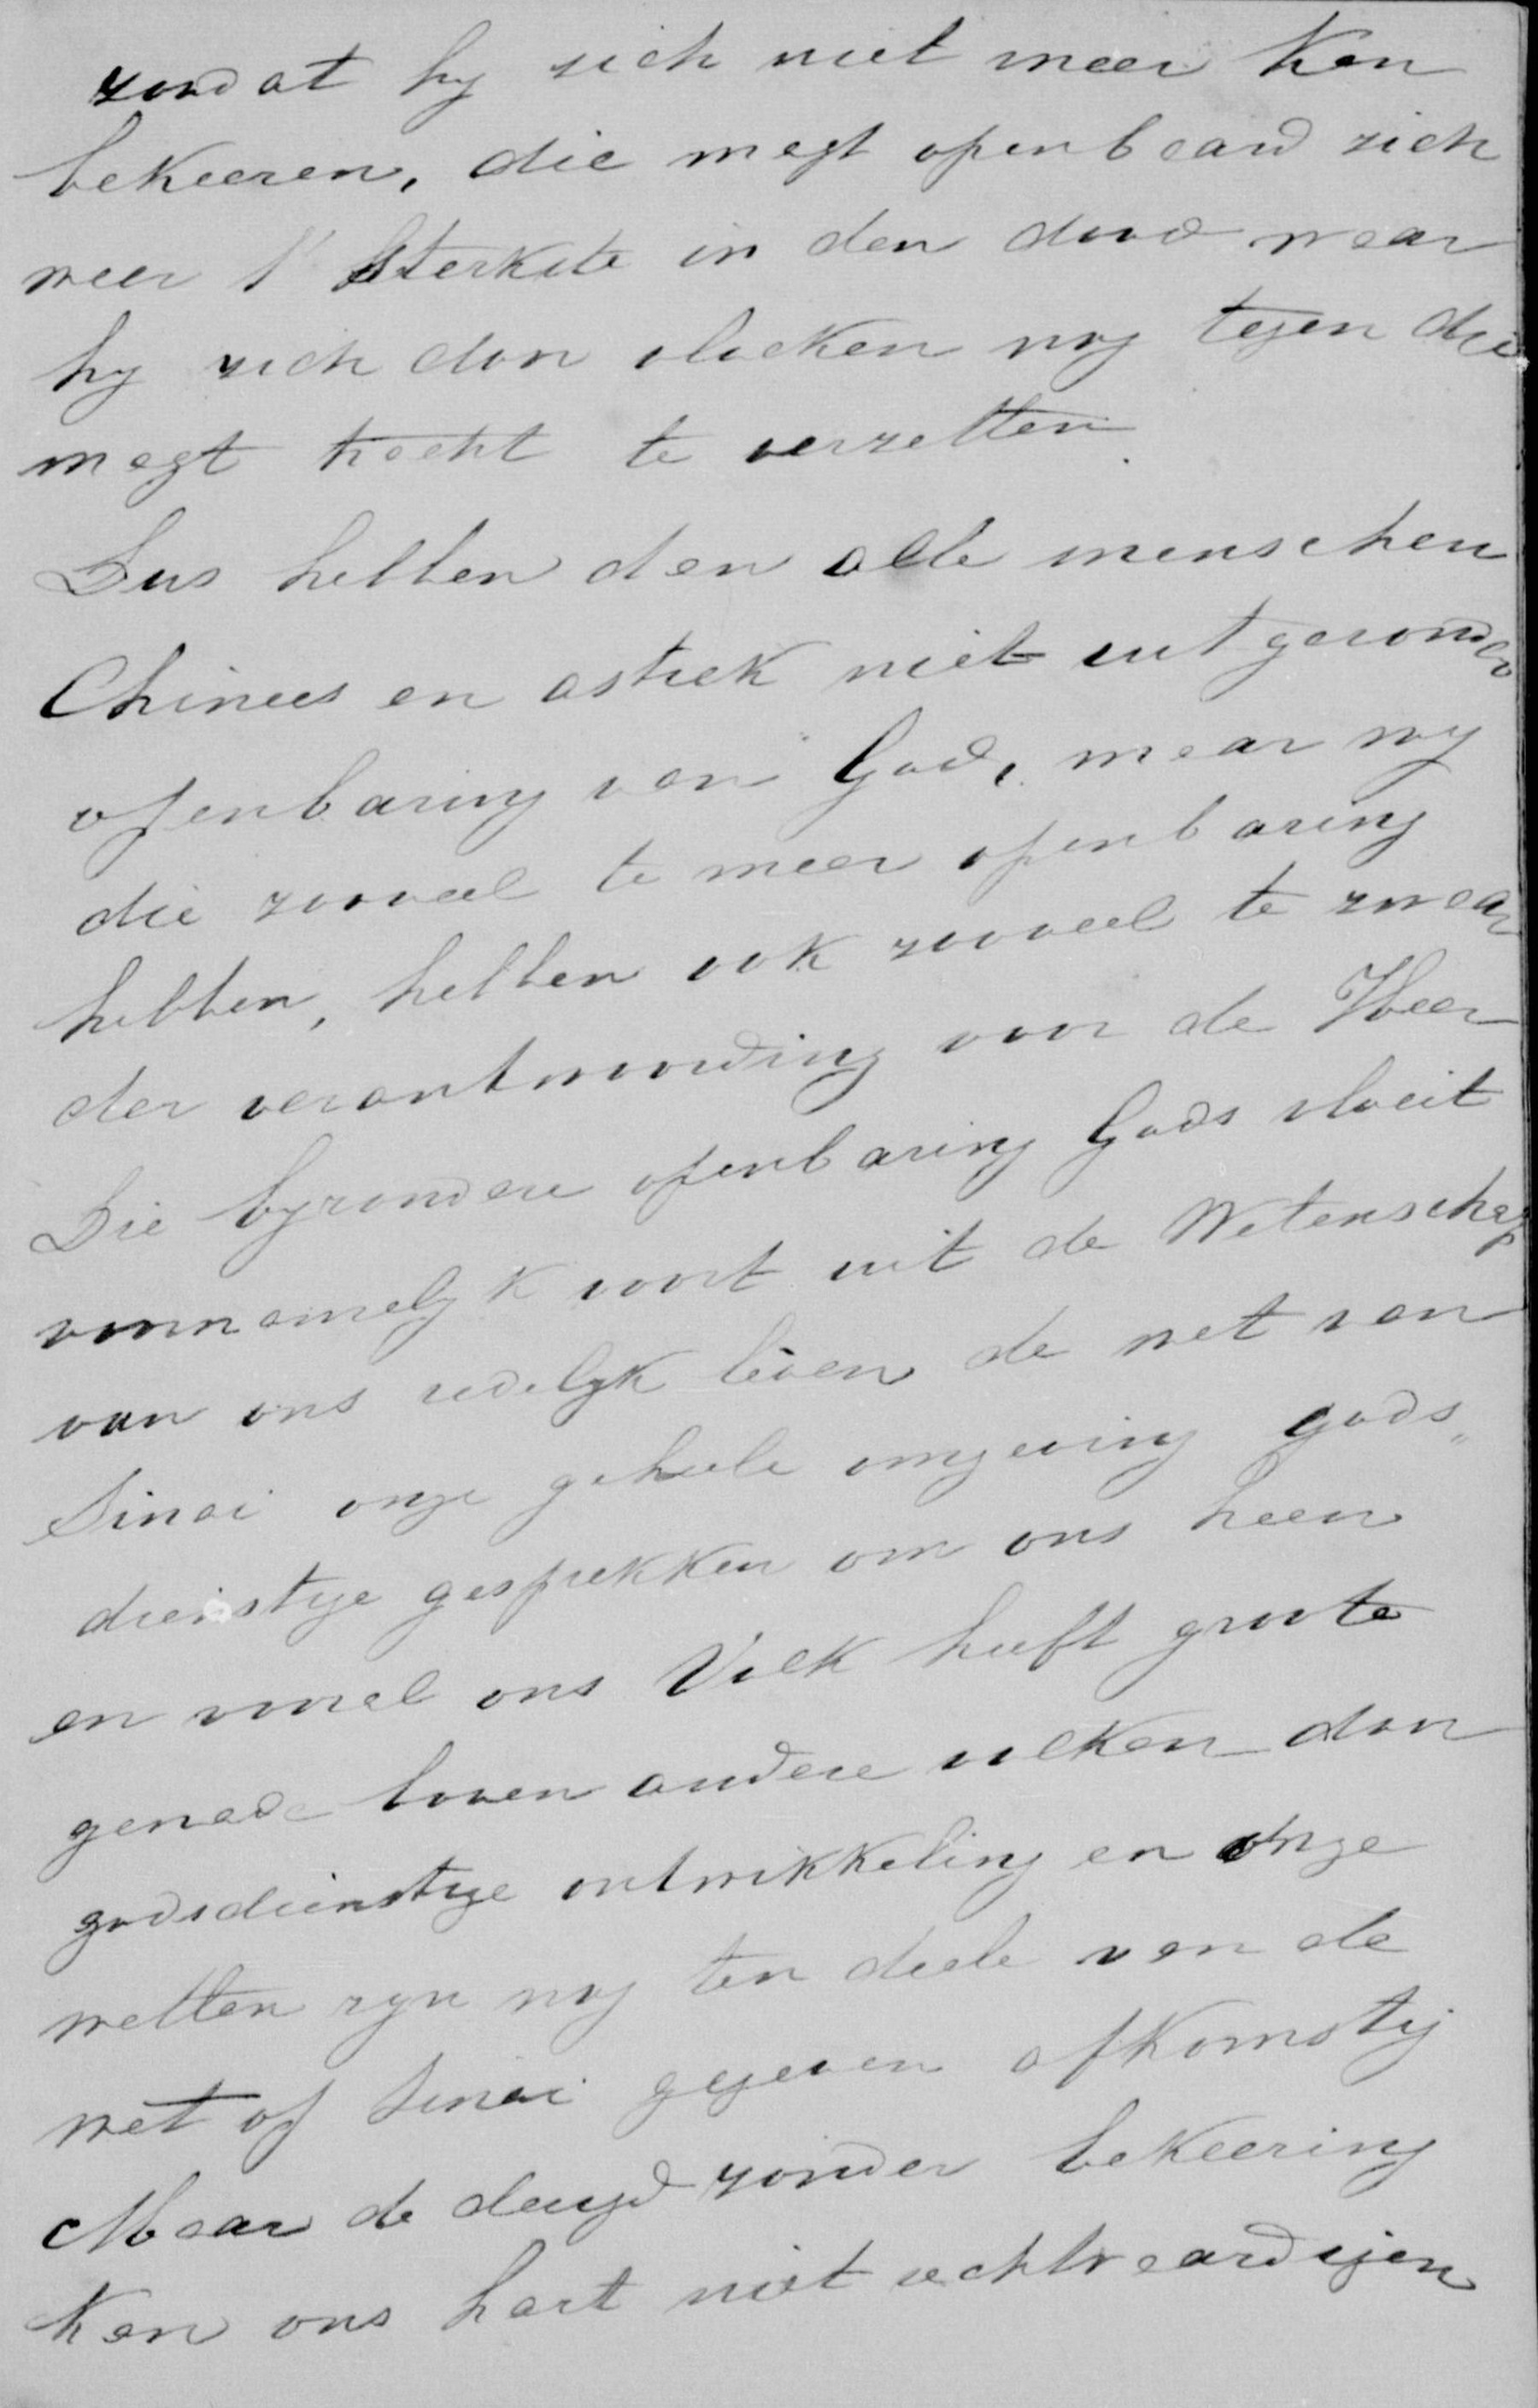 zoodat hy zich niet meer kan
bekeeren, die magt openbaard zich
weer 't sterkste in den dood waar
hy zich dan vloeken nog tegen die
magt tracht te verzetten.
Dus hebben dan alle menschen
Chinees en astiek niet uitgezonder
openbaring van God, maar wy
die zooveel te meer openbaring
hebben, hebben ook zooveel te zwaar
der verantwoording voor de Heer
Die byzondere openbaring Gods vloeit
voornamelyk voort uit de Wetenschap
van ons redelyk leven de wet van
Sinai onze geheele omgeving gods„
dienstige gesprekken om ons heen
en vooral ons Volk heeft groote
genade boven andere volken door
godsdienstige ontwikkeling en onze
wetten zyn nog ten deele van de
wet op Sinai gegeven afkomstig
Maar de deugd zonder bekeering
kan ons hart niet rechtvaardigen